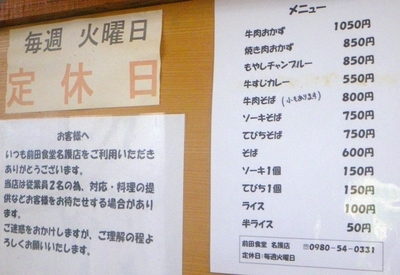 毎週 火曜日
定休日
お客様へ
いつも前田食堂名護店をご利用いただき
ありがとうございます。
当店は従業員2名の為、対応・料理の提
供などお客様をお待たせする場合があり
ます。
ご迷惑をおかけしますが、ご理解の程よ
ろしくお願いいたします。
メニュー
牛肉おかず 1050円
焼き肉おかず 850円
もやしチャンプルー 850円
牛すじカレー 550円
牛肉そば (小もあります) 800円
ソーキそば 750円
てびちそば 750円
そば 600円
ソーキ1個 150円
てびち1個 150円
ライス 100円
半ライス 50円
前田食堂 名護店
☎0980-54-0331
定休日:毎週火曜日